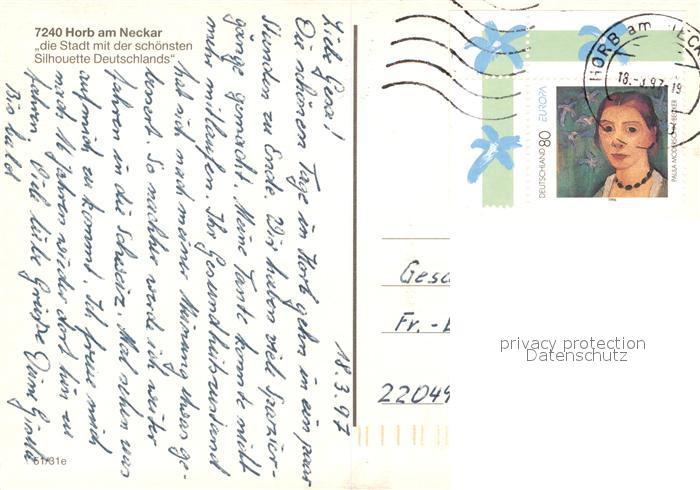 7240 Horb am Neckar
„die Stadt mit der schönsten
Silhouette Deutschlands"
18.3.97
Liebe Gesa!
Die schönen Tage in Horb gehn in ein paar
Stunden zu Ende. Wir haben viel Spazier-
gänge gemacht. Meine Tante konnte nicht
mehr mitlaufen. Ihr Gesundheitszustand
hat sich nach meiner Meinung etwas ge-
bessert. So nachher werde ich weiter
fahren in die Schweiz. Mal sehn was
auf mich zu kommt. Ich freue mich
nach 16 Jahren wieder dort hin zu
fahren. Viele liebe Grüße Deine
Bis bald
51/31e
HORB am NECK
18.-3.97-19
DEUTSCHLAND 80 EUROPA
PAULA MODERSOHN-BECKER
1996
Gesa
Fr.-
22049
privacy protection
Datenschutz